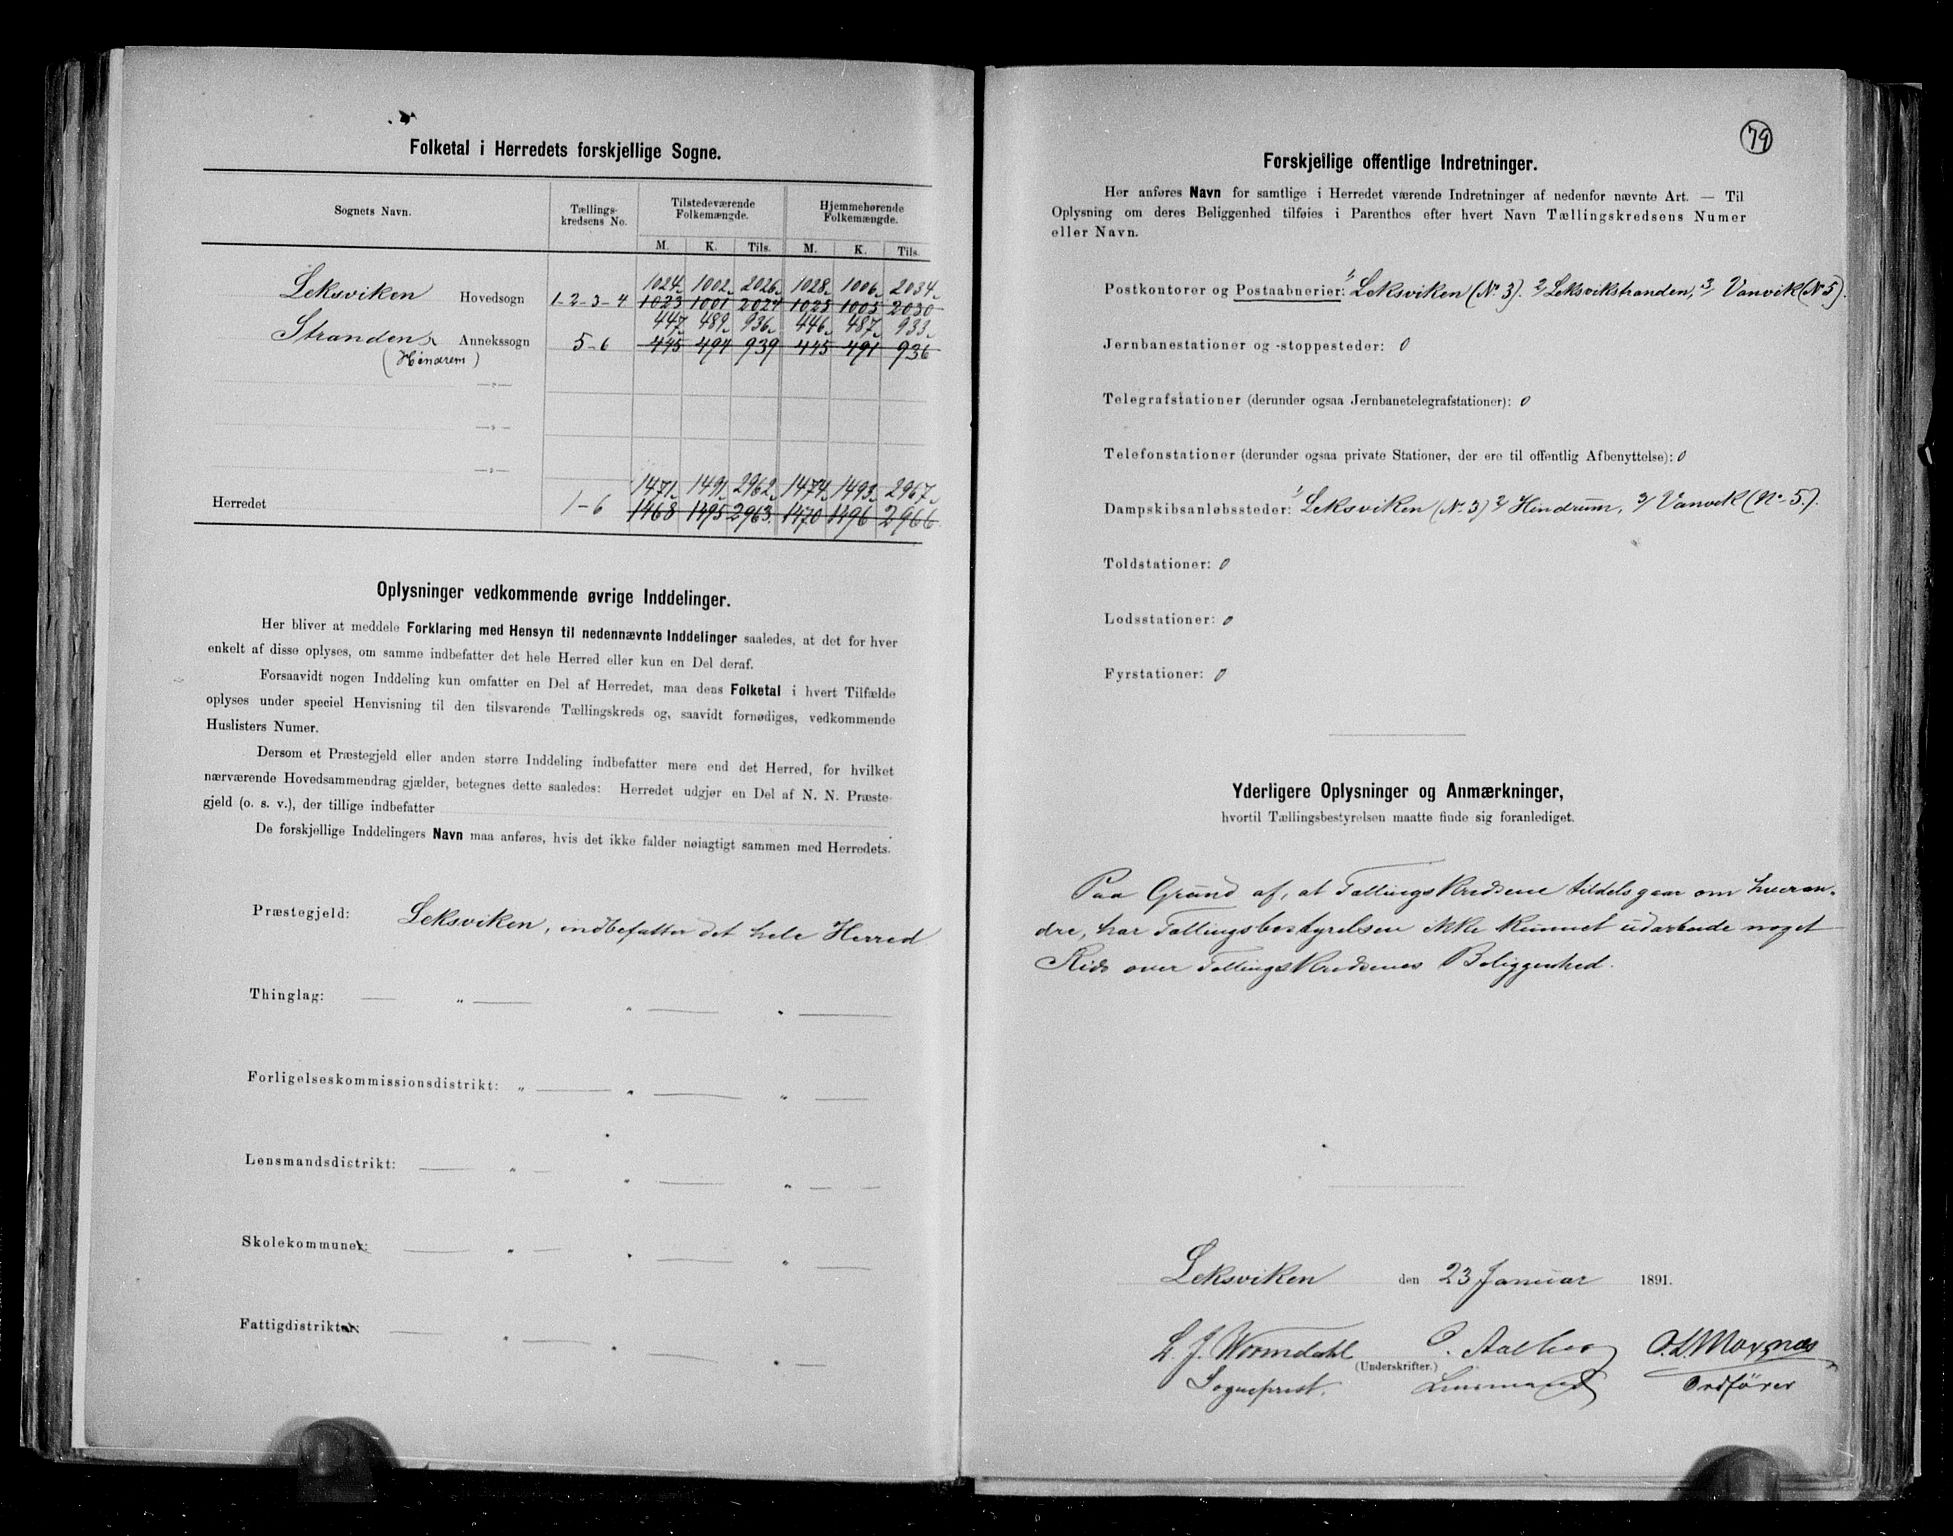 Folketal i Herredets forskjellige Sogne.
Sognets Navn. Tællings- kredsens No. Tilstedeværende Folkemængde. Hjemmehørende Folkemængde.
M. K. Tils. M. K. Tils.
1024 1002 2026 1028 1006 2034
Leksviken Hovedsogn 1-2-3-4 1023 1001 2024 1025 1005 2030
447 489 936 446 487 933
Stranden Annekssogn 5-6 445 494 939 445 491 936
(Hindrem) —„—
—„—
—„—
1471 1491 2962 1474 1493 2967
Herredet 1-6 1468 1495 2963 1470 1496 2966
Oplysninger vedkommende øvrige Inddelinger.
Her bliver at meddele Forklaring med Hensyn til nedennævnte Inddelinger saaledes, at det for hver
enkelt af disse oplyses, om samme indbefatter det hele Herred eller kun en Del deraf.
Forsaavidt nogen Inddeling kun omfatter en Del af Herredet, maa dens Folketal i hvert Tilfælde
oplyses under speciel Henvisning til den tilsvarende Tællingskreds og, saavidt fornødiges, vedkommende
Huslisters Numer.
Dersom et Præstegjeld eller anden større Inddeling indbefatter mere end det Herred, for hvilket
nærværende Hovedsammendrag gjælder, betegnes dette saaledes: Herredet udgjør en Del af N. N. Præste-
gjeld (o. s. v.), der tillige indbefatter
De forskjellige Inddelingers Navn maa anføres, hvis det ikke falder nøiagtigt sammen med Herredets.
Præstegjeld: Leksviken, indbefatter det hele Herred
Thinglag: — „ — „ — „ —
Forligelseskommissionsdistrikt: „ — „ — „ —
Lensmandsdistrikt: — „ — „ — „ —
Skolekommuner: — „ — „ — „ —
Fattigdistrikter: — „ — „ — „ —
79
Forskjellige offentlige Indretninger.
Her anføres Navn for samtlige i Herredet værende Indretninger af nedenfor nævnte Art. — Til
Oplysning om deres Beliggenhed tilføies i Parenthes efter hvert Navn Tællingskredsens Numer
eller Navn.
Postkontorer og Postaabnerier: 1/ Leksviken (No 3). 2/ Leksvikstranden, 3/ Vanvik (No 5).
Jernbanestationer og -stoppesteder: 0
Telegrafstationer (derunder ogsaa Jernbanetelegrafstationer): 0
Telefonstationer (derunder ogsaa private Stationer, der ere til offentlig Afbenyttelse): 0
Dampskibsanløbssteder: 1/ Leksviken (No 3) 2/ Hindrum, 3/ Vanvik (No 5.).
Toldstationer: 0
Lodsstationer: 0
Fyrstationer: 0
Yderligere Oplysninger og Anmærkninger,
hvortil Tællingsbestyrelsen maatte finde sig foranlediget.
Paa Grund af, at Tællingskredsene tildels gaar om hveran-
dre, har Tællingsbestyrelsen ikke kunnet udarbeide noget
Rids over Tællingskredsenes Beliggenhed.
Leksviken den 23 Januar 1891.
L. J. Wormdahl O. Aalberg
(Underskrifter.)
Sogneprest. Lensmand Ordfører